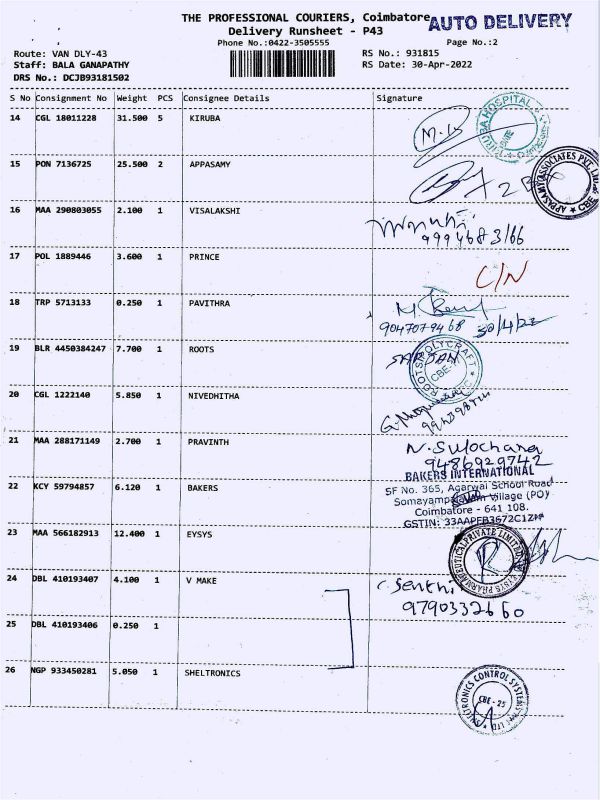 THE PROFESSIONAL COURIERS, Coimbatore
AUTO DELIVERY
Delivery Runsheet - P43
Phone No.:0422-3505555
Page No.:2
Route: VAN DLY-43
RS No.: 931815
Staff: BALA GANAPATHY
RS Date: 30-Apr-2022
DRS No.: DCJB93181502
S No Consignment No Weight PCS Consignee Details Signature
14 CGL 18011228 31.500 5 KIRUBA
KIRUBA HOSPITAL
15 PON 7136725 25.500 2 APPASAMY
APPASAMY ASSOCIATES PVT. CBE
16 MAA 290803055 2.100 1 VISALAKSHI
9994683166
17 POL 1889446 3.600 1 PRINCE
C/N
18 TRP 5713133 0.250 1 PAVITHRA
9047079468 30/4/22
19 BLR 4450384247 7.700 1 ROOTS
ROOTS POLYCRAFT
CBE
20 CGL 1222140 5.850 1 NIVEDHITHA
21 MAA 288171149 2.700 1 PRAVINTH
N. Sulochana
9486929742
22 KCY 59794857 6.120 1 BAKERS
BAKERS INTERNATIONAL
SF No. 365, Agarwal School Road
Village (PO)
Coimbatore - 641 108.
GSTIN: 33AAPFB3672C1Z
23 MAA 566182913 12.400 1 EYSYS
EYSYS PHARMACEUTICAL PRIVATE LIMITED
24 DBL 410193407 4.100 1 V MAKE
C. Senthi
9790332660
25 DBL 410193406 0.250 1
26 NGP 933450281 5.050 1 SHELTRONICS
SHELTRONICS CONTROL SYSTEMS
CBE - 25